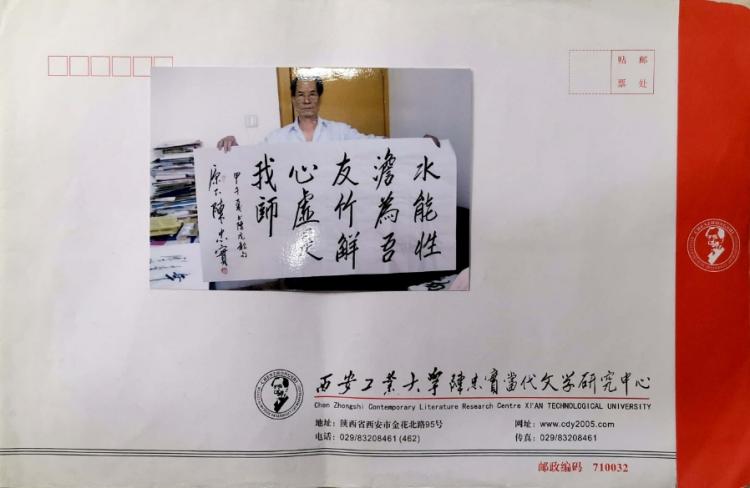 贴 邮
票 处
水能性
澹為吾
友竹解
心虛是
我師
甲午夏
原下陳忠實
西安工业大学陳忠實當代文学研究中心
Chen Zhongshi Contemporary Literature Research Centre XI'AN TECHNOLOGICAL UNIVERSITY
地址:陕西省西安市金花北路95号 网址:www.cdy2005.com
电话:029/83208461 (462) 传真:029/83208461
邮政编码 710032